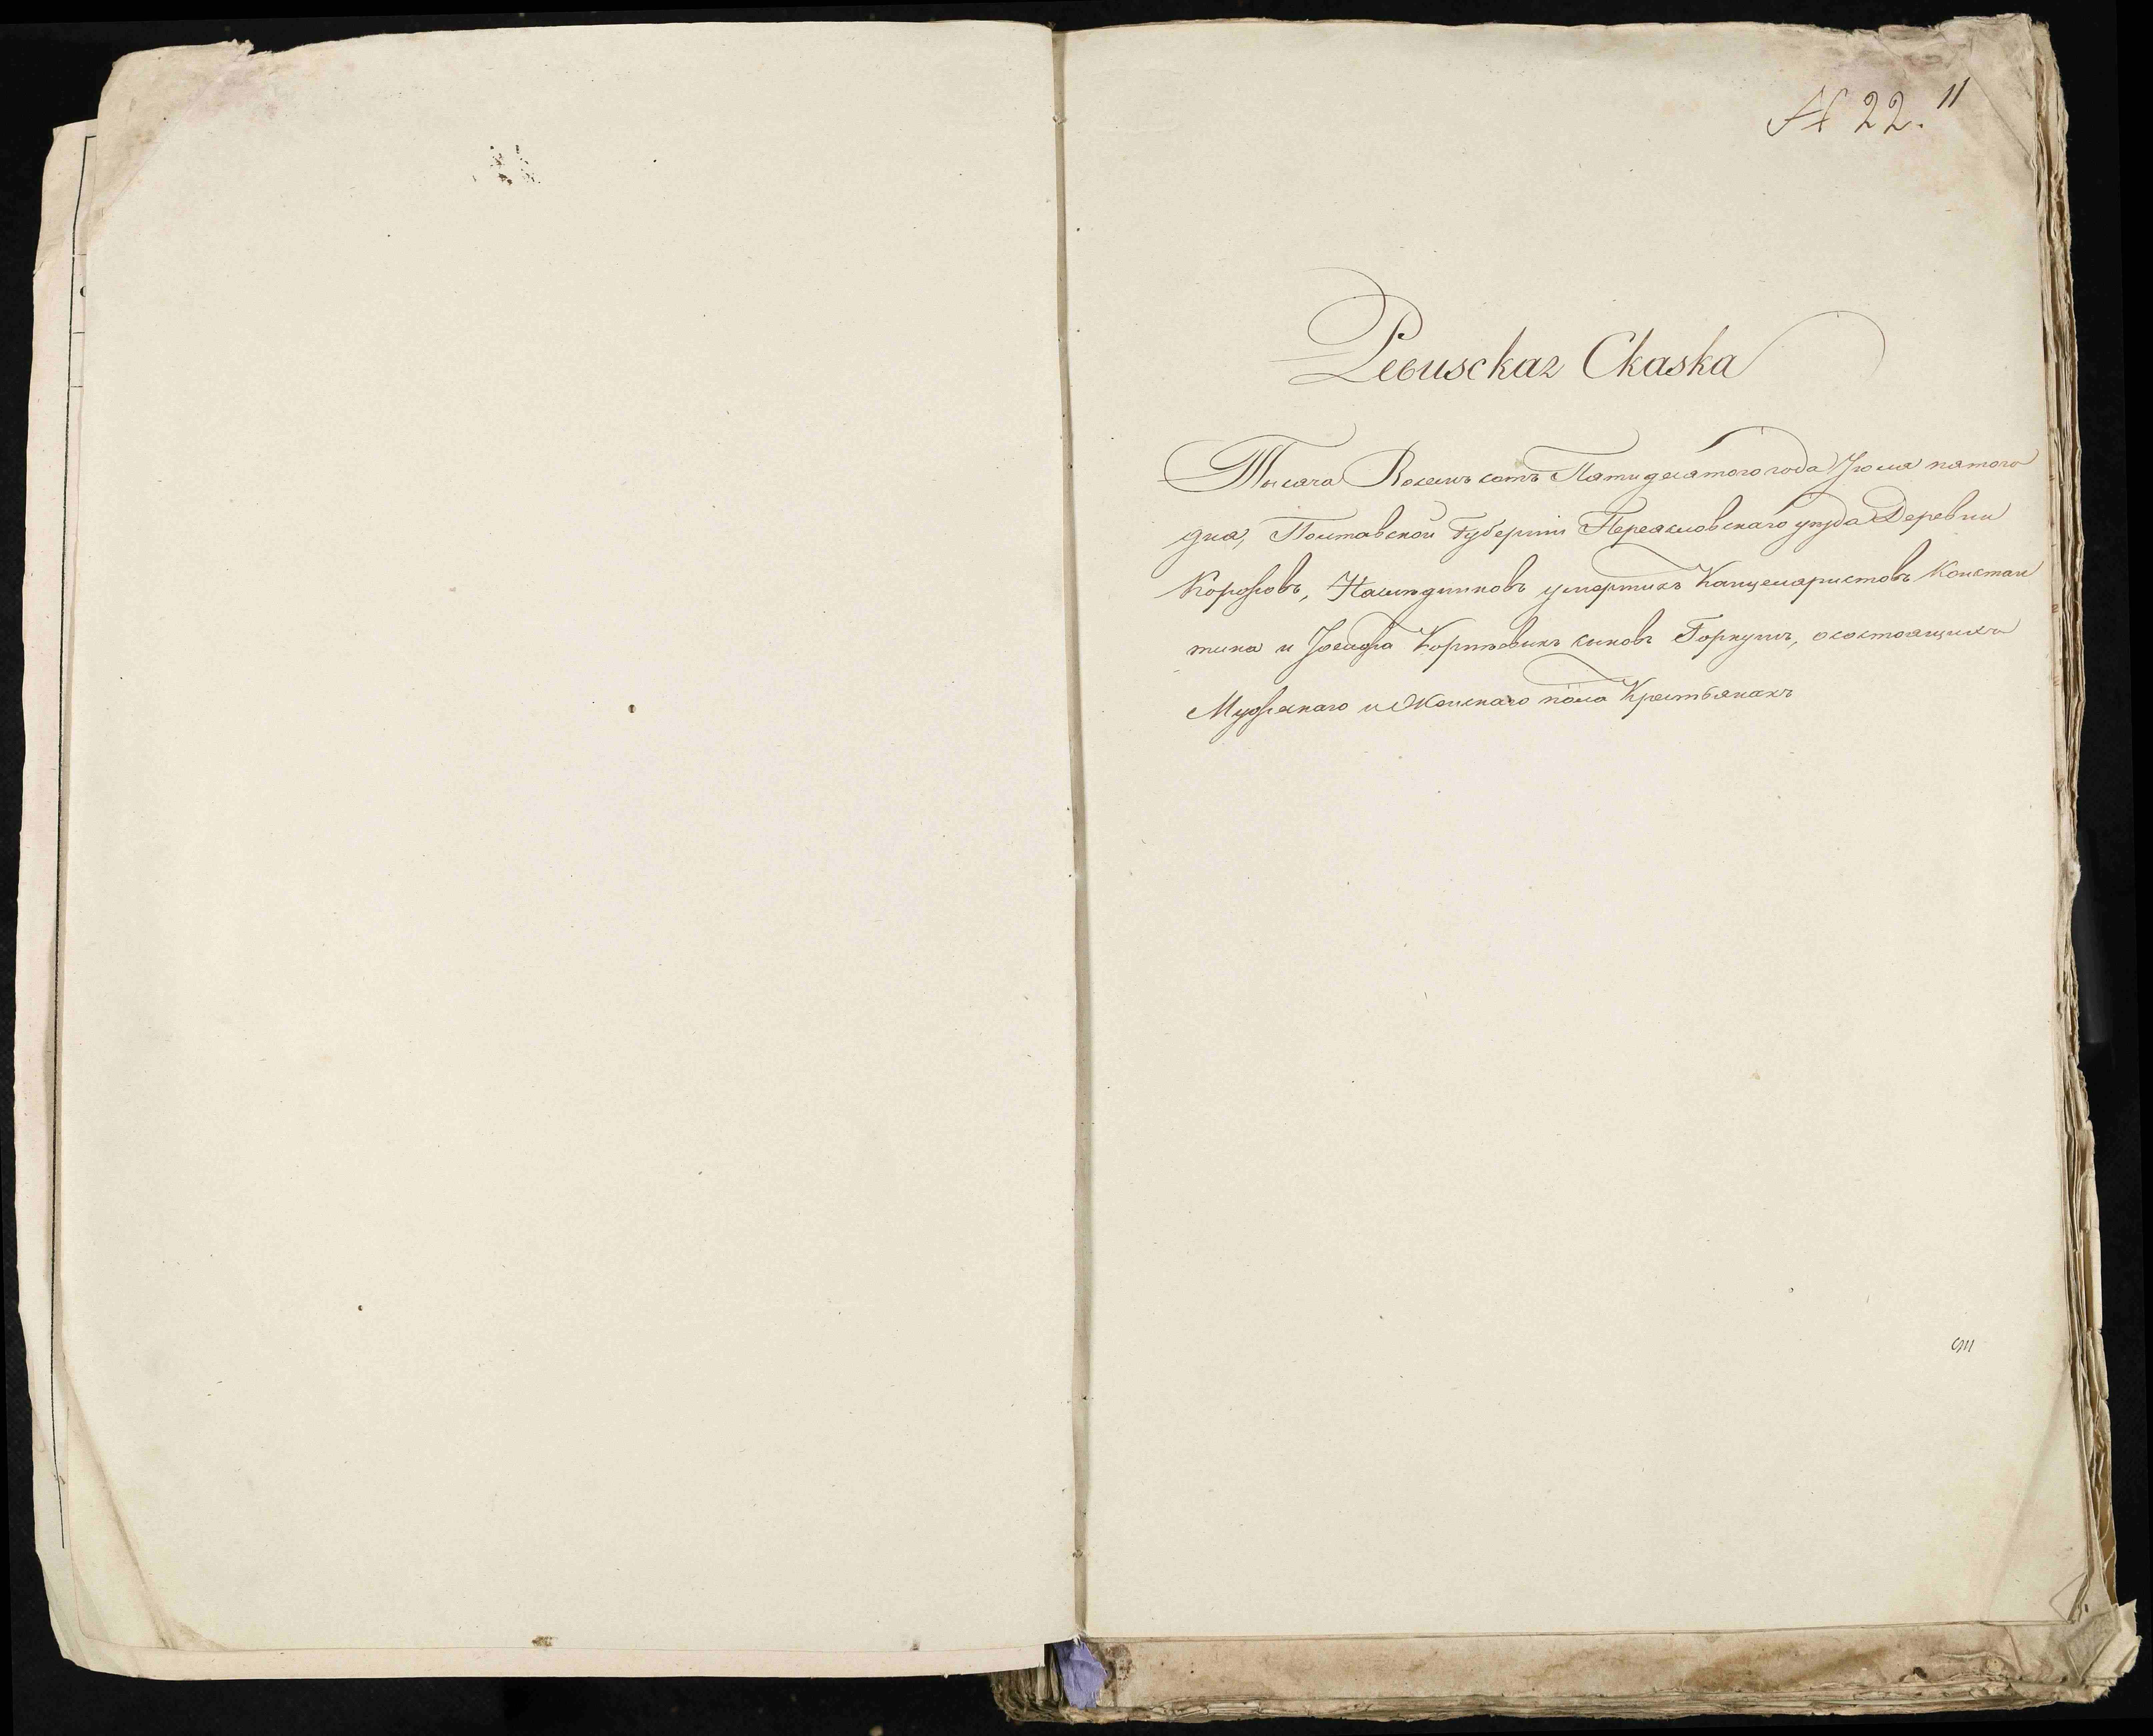 № 22. 11
Ревизская Сказка
Тысяча Восемьсотъ Пятидесятого года Іюля пятого
дня, Полтавской Губерніи Переяславскаго уѣзда Деревни
Коржовъ, Наслѣдниковъ умершихъ Канцеляристовъ Констан
тина и Іосифа сыновъ Горкушъ, о состоящихъ
Мужескаго и Женскаго пола Крестьянахъ